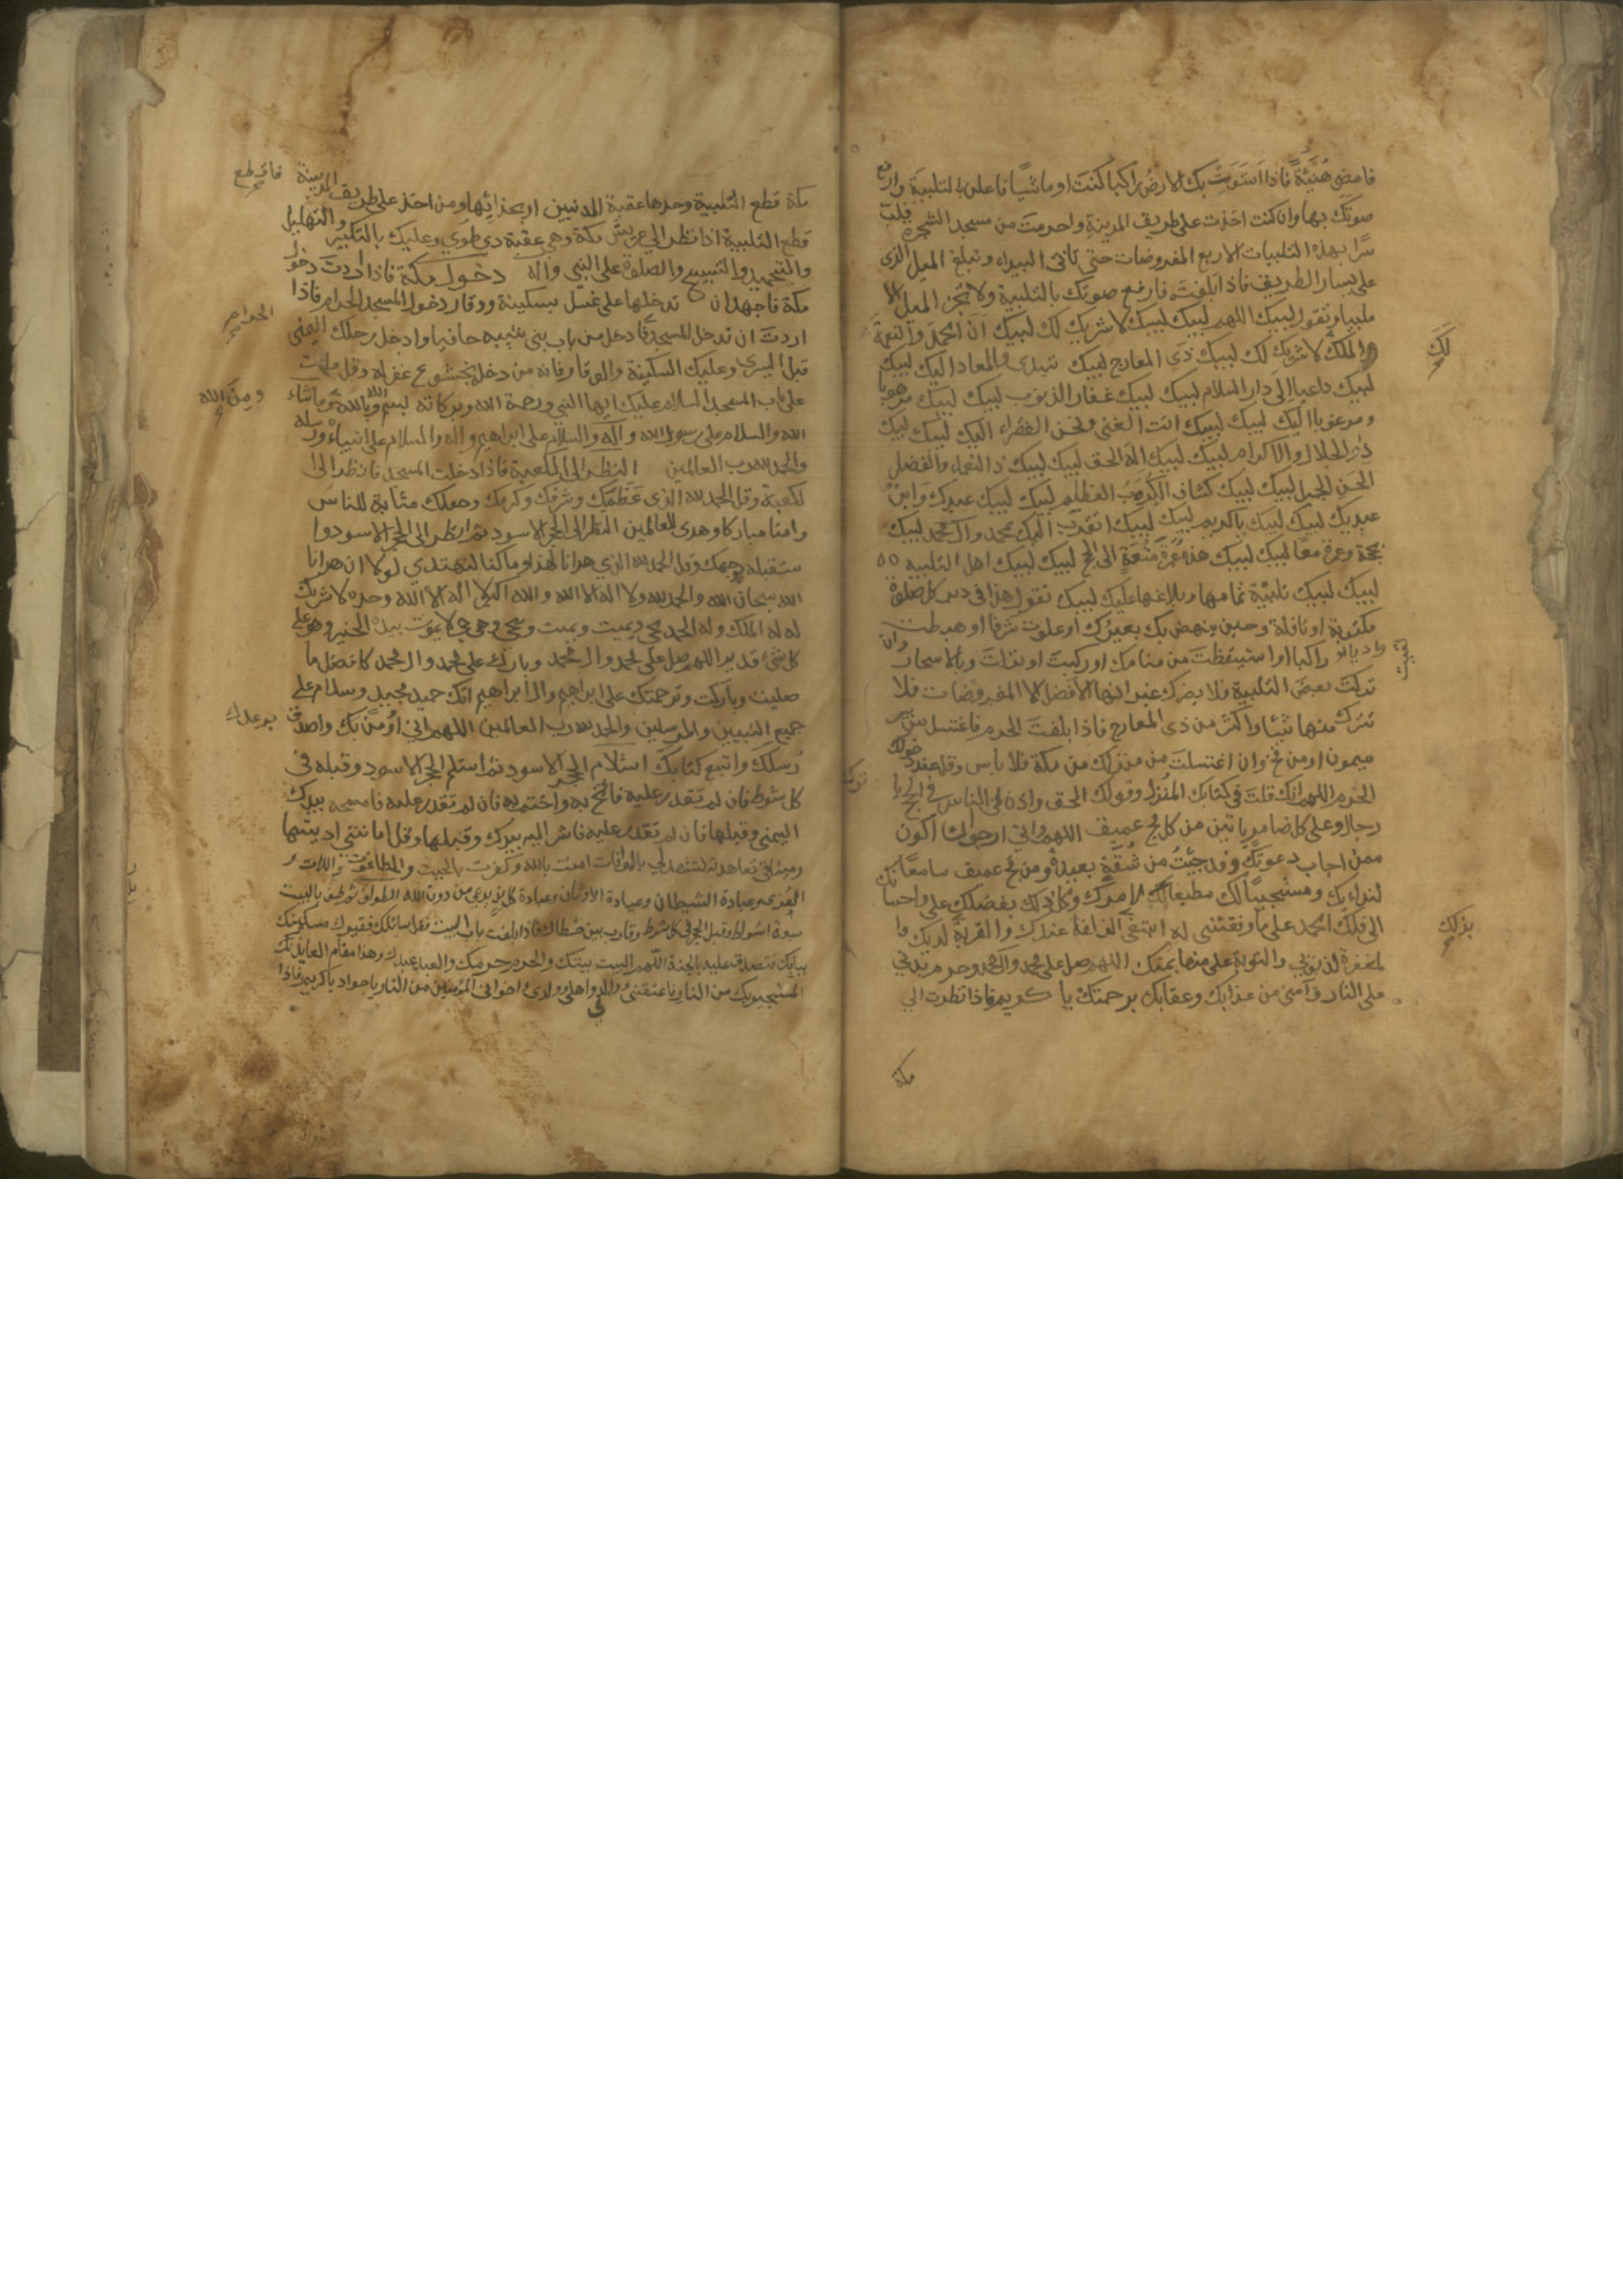 فامض هُنَيْئَةً فاذا استَوَتْ بك الارضُ راكبا كنتَ او ماشيًا فاعلن بالتلبية وارفع
صوتكَ بها وان كنت اخذت على طريق المدينةِ واحرمتَ من مسجد الشجره فلبّ
سرًا بهذه التلبيات الاربع المفروضات حتى تاتى البيداء وتبلغ الميل الذى
على يسار الطريق فاذا بلغتَه فارفع صوتك بالتلبية ولا تجز الميل الا
ملبيا وتقول لبيك اللهم لبيك لبيك لا شريك لك لبيك انّ الحمدَ والنعمةَ
لَكَ
والملكَ لا شريك لك لبيك ذى المعارج لبيك تبدى والمعاد اليك لبيك
لبيك داعيا الى دار السلام لبيك لبيك غفار الذنوب لبيك لبيك مرهوبا
ومرغوبا اليك لبيك لبيك انت الغنى ونحن الفقراء اليك لبيك لبيك
ذا الجلال والاكرام لبيك لبيك اله الحق لبيك لبيك ذا النعماء والفضل
الحسن الجميل لبيك لبيك كشاف الكُرَبِ العظام لبيك لبيك عبدك وابنُ
عبديك لبيك لبيك يا كريم لبيك لبيك اتقرب اليك بمحمد وال محمد لبيك
بحجة وعمرة معًا لبيك لبيك هذه عُمرة مُتعَةٍ الى الحج لبيك لبيك اهل التلبيه
لبيك لبيك تلبيَةً تمامها وبلاغها عليك لبيك تقول هذا فى دبر كل صلوة
مكتوبة او نافلة وحين ينهض بك بعيرُك او علوت شرفا او هبطت
واديا او لقيت راكبا او استيقظتَ من منامك او ركبتَ او نزلتَ وبالاسحار وان
تركتَ بعضَ التلبيةِ فلا يضرك غير انها الافضل الا المفروضات فلا
تترك منها شيئا واكثر من ذى المعارج فاذا بلغتَ الحرم فاغتسل من بير
ميمون او من فخ وان اغتسلتَ من منزلك من مكة فلا باس وقل عند دخولك
الحرم اللهم انك قلتَ فى كتابك المُنزل وقولك الحق واذن فى الناس بالحج ياتوك
رجالا وعلى كل ضامر ياتين من كل فج عميق اللهم وانى ارجو ان اكون
ممن اجاب دعوتَكَ وقد جئتُ من شُقَّةٍ بعيدةٍ ومن فج عميق سامعًا
لندائك ومستجيبًا لك مطيعا لامرك وكل ذلك بفضلك علىّ واحسانك
بذلك
الى فلك الحمد على ما وفقتنى له ابتغى الزلفة عندك والقربة لديك وا
لمغفرة لذنوبى والتوبة على منها بمنك اللهم صل على محمد وال محمد وحرم بدنى
على النار وآمنى من عذابك وعقابك برحمتك يا كريم فاذا نظرت الى
مكة
مكة فاقطع التلبية وحدها عقبة المدنيين او بحذائها ومن اخذ على طريق المدينة
قطع التلبية اذا نظر الى عريش مكة وهى عقبة ذى طوى وعليك بالتكبير والتهليل
والتحميد والتسبيح والصلوة على النبى وآله دخول مكة فاذا اردتَ دخول
مكة فاجهد ان تدخلها على غسل بسكينة ووقار دخول المسجد الحرام فاذا
اردتَ ان تدخل المسجد الحرام فادخل من باب بنى شيبه حافيا وادخل برجلك اليمنى
قبل اليسرى وعليك السكينة والوقار فانه من دخله بخشوع غفر له وقل وانت
على باب المسجد السلام عليك ايها النبى ورحمة الله وبركاته بسم الله وبالله ومن الله وما شاء
الله والسلام على رسول الله وآله والسلام على ابراهيم واله والسلام على انبياء الله ورسله
والحمد لله رب العالمين النظر الى الكعبة فاذا دخلت المسجد فانظر الى ا
لكعبة وقل الحمد لله الذى عَظّمَك وشرفك وكرمك وجعلك مثابة للناس
وامنا مباركا وهدى للعالمين النظر الى الحجر الاسود ثم انظر الى الحجر الاسود وا
ستقبله بوجهك وقل الحمد لله الذي هدانا لهذا وما كنا لنهتدي لولا ان هدانا
الله سبحان الله والحمد لله ولا اله الا الله والله اكبر لا اله الا الله وحده لا شريك
له له الملك وله الحمد يحيى ويميت ويميت ويحيى وهو حى لا يموت بيده الخير وهو على
كل شئ قدير اللهم صل على محمد وال محمد وبارك على محمد وال محمد كافضل ما
صليت وباركت وترحمتك على ابراهيم وال ابراهيم انك حميد مجيد وسلام على
جميع النبيين والمرسلين والحمد لله رب العالمين اللهم انى اُومن بوعدك واصدق
رُسلك واتبع كتابك استلام الحجر الاسود ثم استلم الحجر الاسود وقبله فى
كل شوط فان لم تقدر عليه فافتح به واختم به فان لم تقدر عليه فامسحه بيدك
اليمنى وقبلها فان لم تقدر عليه فاشر اليه بيدك وقبلها وقل امانتى اديتها
وميثاقى تعاهدته لتشهد لى بالموافات امنت بالله وكفرت بالجبت والطاغوت واللات و
العُزى وعبادة الشيطان وعبادة الاوثان وعبادة كل ندٍ يدعى من دون الله الطواف ثم طف بالبيت
سبعة اشواط وقبل الحجر فى كل شوط وقارب بين خطاك فاذا بلغت باب البيت فقل سائلك فقيرك مسكينك
ببابك فتصدق عليه بالجنة اللهم البيت بيتك والحرم حرمك والعبد عبدك وهذا مقام العايذ بك
المستجير بك من النار فاعتقنى ووالدى واهلى وولدى واخوانى المؤمنين من النار يا جواد يا كريم فاذا